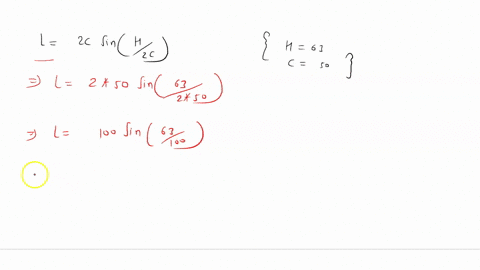 L = 2C Sin(H/2C)
{ H = 63
C = 50 }
⇒ L = 2*50 Sin(63/2*50)
⇒ L = 100 Sin(63/100)